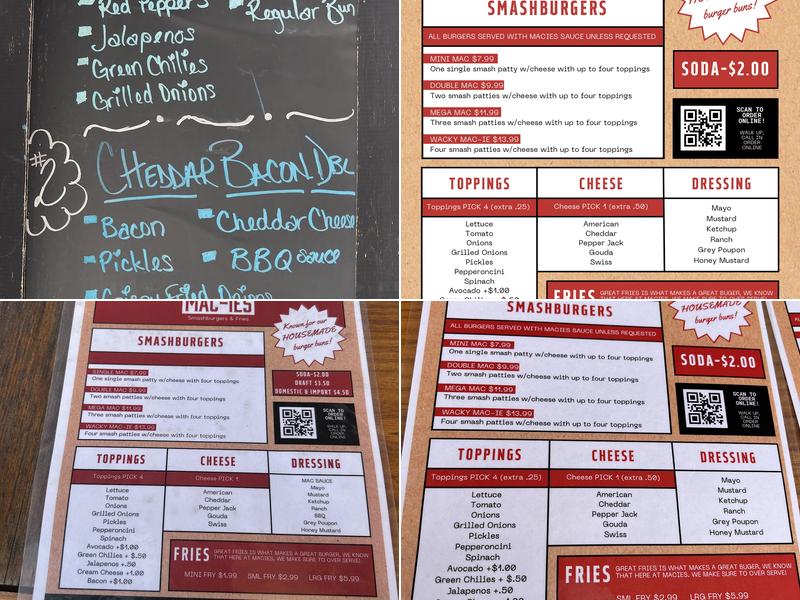 Red Peppers
Regular Bun
Jalapenos
Green Chilies
Grilled Onions
#2
CHEDDAR BACON DBL
Bacon
Cheddar Cheese
Pickles
BBQ sauce
Crispy Fried Onions
SMASHBURGERS
burger buns!
ALL BURGERS SERVED WITH MACIES SAUCE UNLESS REQUESTED
MINI MAC $7.99
One single smash patty w/cheese with up to four toppings
DOUBLE MAC $9.99
Two smash patties w/cheese with up to four toppings
MEGA MAC $11.99
Three smash patties w/cheese with up to four toppings
WACKY MAC-IE $13.99
Four smash patties w/cheese with up to four toppings
SODA-$2.00
SCAN TO
ORDER
ONLINE!
WALK UP,
CALL IN
ORDER
ONLINE
TOPPINGS
Toppings PICK 4 (extra .25)
Lettuce
Tomato
Onions
Grilled Onions
Pickles
Pepperoncini
Spinach
Avocado +$1.00
CHEESE
Cheese PICK 1 (extra .50)
American
Cheddar
Pepper Jack
Gouda
Swiss
DRESSING
Mayo
Mustard
Ketchup
Ranch
Grey Poupon
Honey Mustard
FRIES
GREAT FRIES IS WHAT MAKES A GREAT BUGER, WE KNOW
MAC-IES
Smashburgers & Fries
Known for our
HOUSEMADE
burger buns!
SMASHBURGERS
SINGLE MAC $7.99
One single smash patty w/cheese with four toppings
DOUBLE MAC $9.99
Two smash patties w/cheese with four toppings
MEGA MAC $11.99
Three smash patties w/cheese with four toppings
WACKY MAC-IE $13.99
Four smash patties w/cheese with four toppings
SODA-$2.00
DRAFT $3.50
DOMESTIC & IMPORT $4.50
SCAN TO
ORDER
ONLINE!
WALK UP,
CALL IN
ORDER
ONLINE
TOPPINGS
Toppings PICK 4
Lettuce
Tomato
Onions
Grilled Onions
Pickles
Pepperoncini
Spinach
Avocado +$1.00
Green Chilies + $.50
Jalapenos +$.50
Cream Cheese +1.00
Bacon +$1.00
CHEESE
Cheese PICK 1
American
Cheddar
Pepper Jack
Gouda
Swiss
DRESSING
MAC SAUCE
Mayo
Mustard
Ketchup
Ranch
BBQ
Grey Poupon
Honey Mustard
FRIES
GREAT FRIES IS WHAT MAKES A GREAT BURGER, WE KNOW
THAT HERE AT MACIES. WE MAKE SURE TO OVER SERVE!
MINI FRY $1.99
SML FRY $2.99
LRG FRY $5.99
SMASHBURGERS
HOUSEMADE
burger buns!
ALL BURGERS SERVED WITH MACIES SAUCE UNLESS REQUESTED
MINI MAC $7.99
One single smash patty w/cheese with up to four toppings
DOUBLE MAC $9.99
Two smash patties w/cheese with up to four toppings
MEGA MAC $11.99
Three smash patties w/cheese with up to four toppings
WACKY MAC-IE $13.99
Four smash patties w/cheese with up to four toppings
SODA-$2.00
SCAN TO
ORDER
ONLINE!
WALK UP,
CALL IN
ORDER
ONLINE
TOPPINGS
Toppings PICK 4 (extra .25)
Lettuce
Tomato
Onions
Grilled Onions
Pickles
Pepperoncini
Spinach
Avocado +$1.00
Green Chilies +$.50
Jalapenos +.50
CHEESE
Cheese PICK 1 (extra .50)
American
Cheddar
Pepper Jack
Gouda
Swiss
DRESSING
Mayo
Mustard
Ketchup
Ranch
Grey Poupon
Honey Mustard
FRIES
GREAT FRIES IS WHAT MAKES A GREAT BUGER, WE KNOW
THAT HERE AT MACIES. WE MAKE SURE TO OVER SERVE!
MINI FRY $1.99
SML FRY $2.99
LRG FRY $5.99